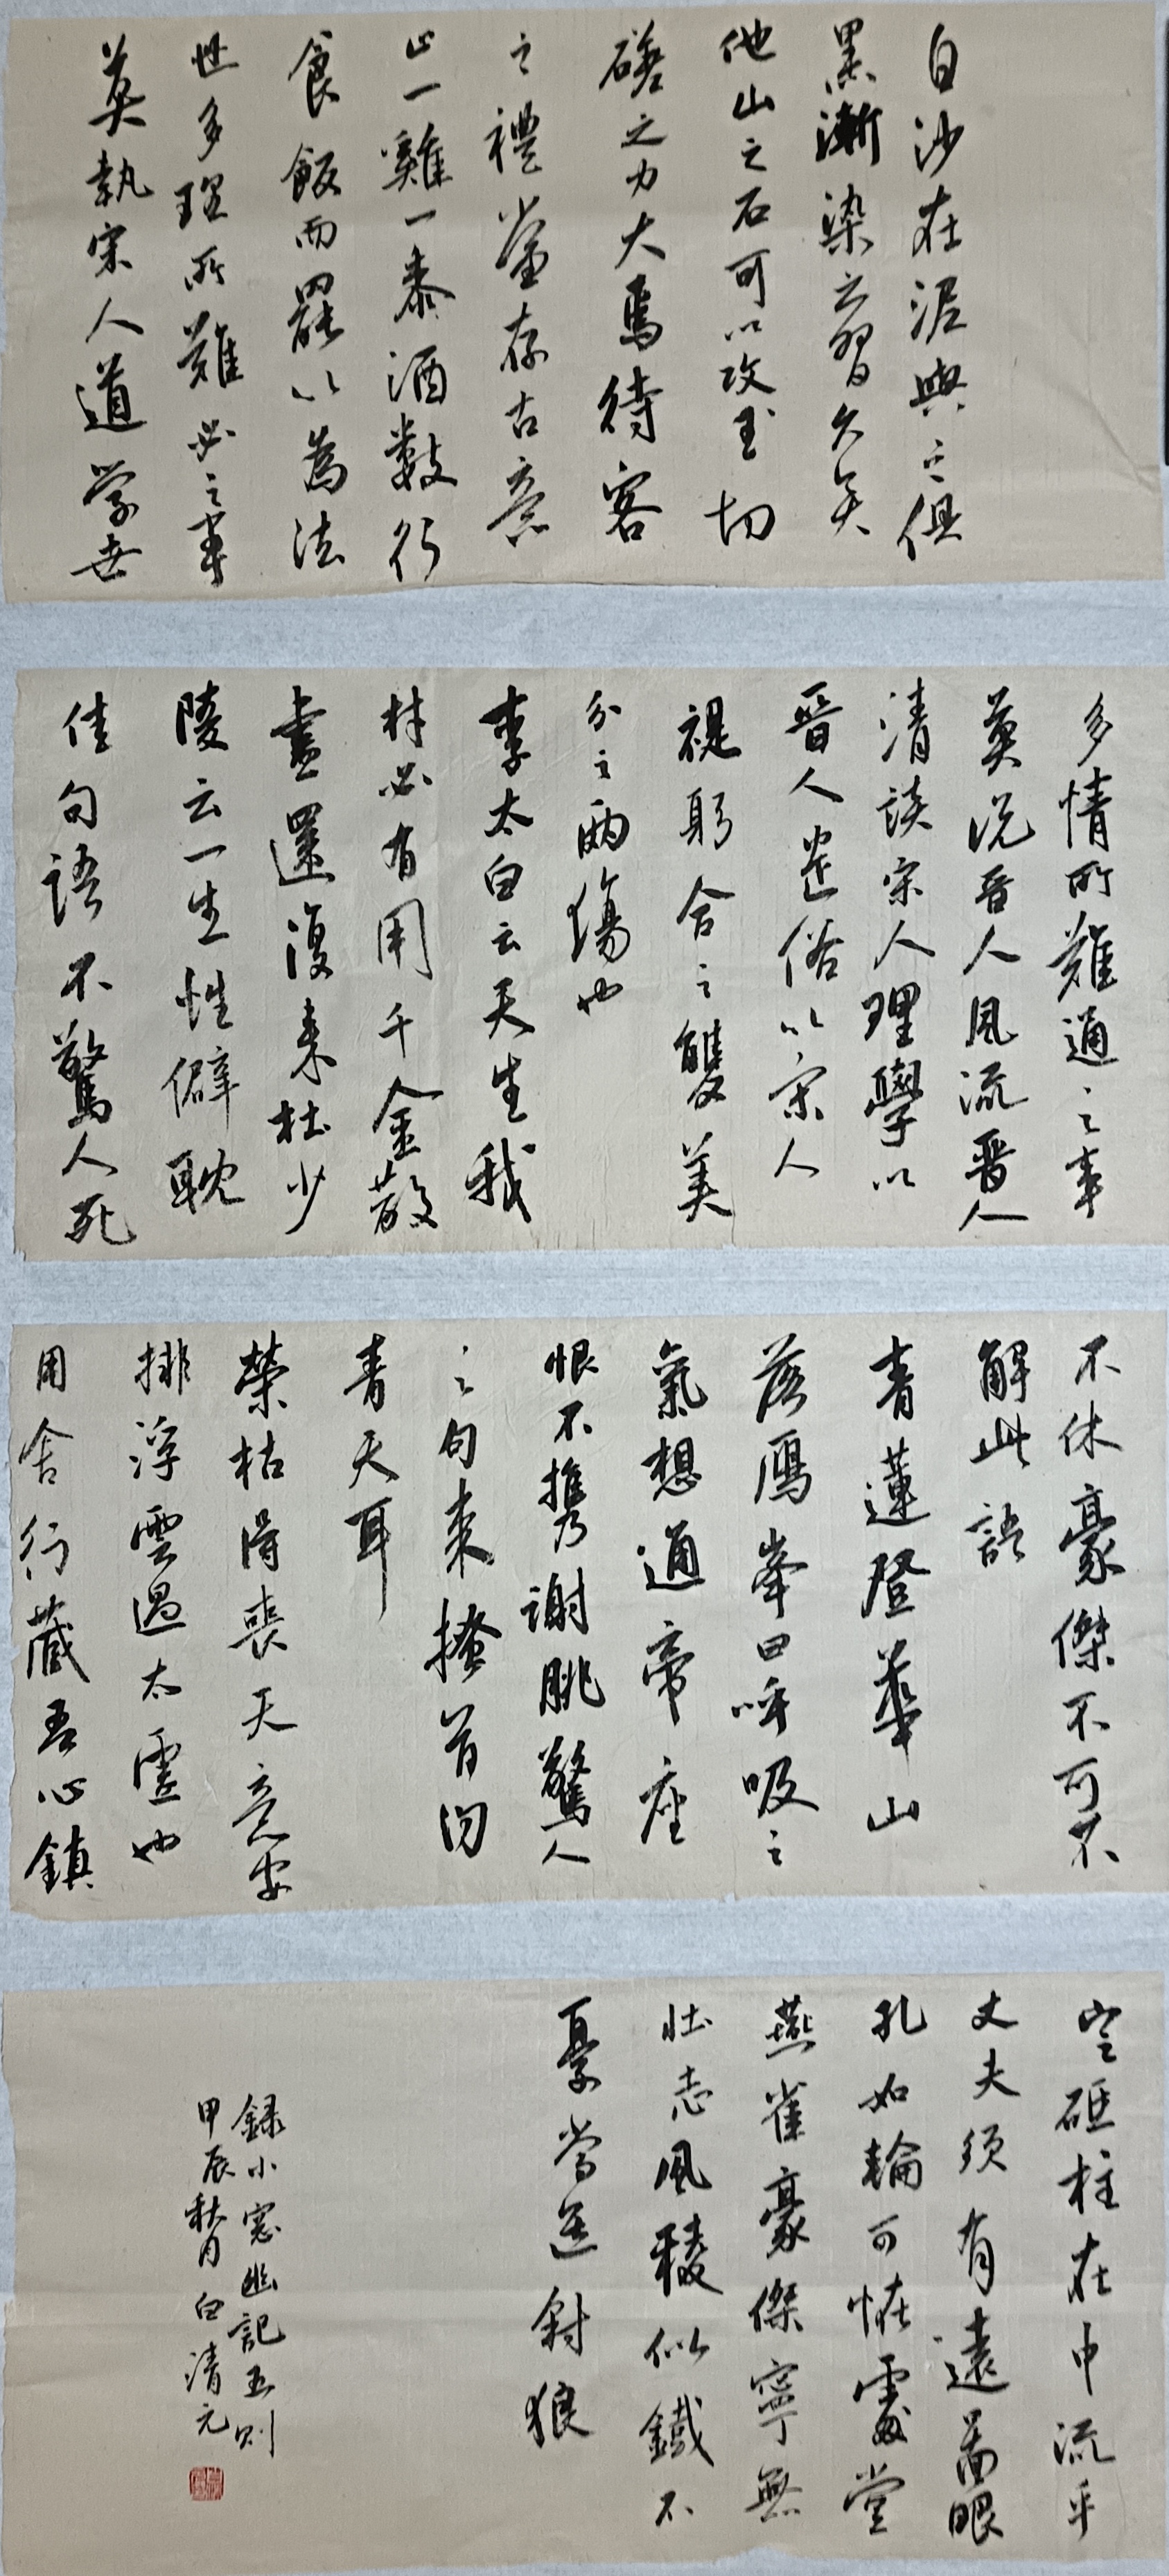 白沙在泥與之俱
黑漸染之習久矣
他山之石可以攻玉切
磋之力大焉待客
之禮當存古意
止一雞一黍酒數行
食飯而罷以為法
世多理所難必之事
莫執宋人道學世
多情所難通之事
莫説晋人風流晋人
清談宋人理學以
晉人遣俗以宋人
禔躬合之雙美
分之兩傷也
李太白云天生我
材必有用千金散
盡還復來杜少
陵云一生性僻耽
佳句語不驚人死
不休豪傑不可不
解此語
青蓮登華山
落鴈峯曰呼吸之
氣想通帝座
恨不攜謝朓驚人
之句來搔首问
青天耳
榮枯得喪天意安
排浮雲過太虛也
用舍行藏吾心鎮
定砥柱在中流乎
丈夫须有遠啚眼
孔如輪可怪處堂
燕雀豪傑寧無
壯志風稜似鐵不
憂當道豺狼
録小窓幽記五則
甲辰秋月白清元